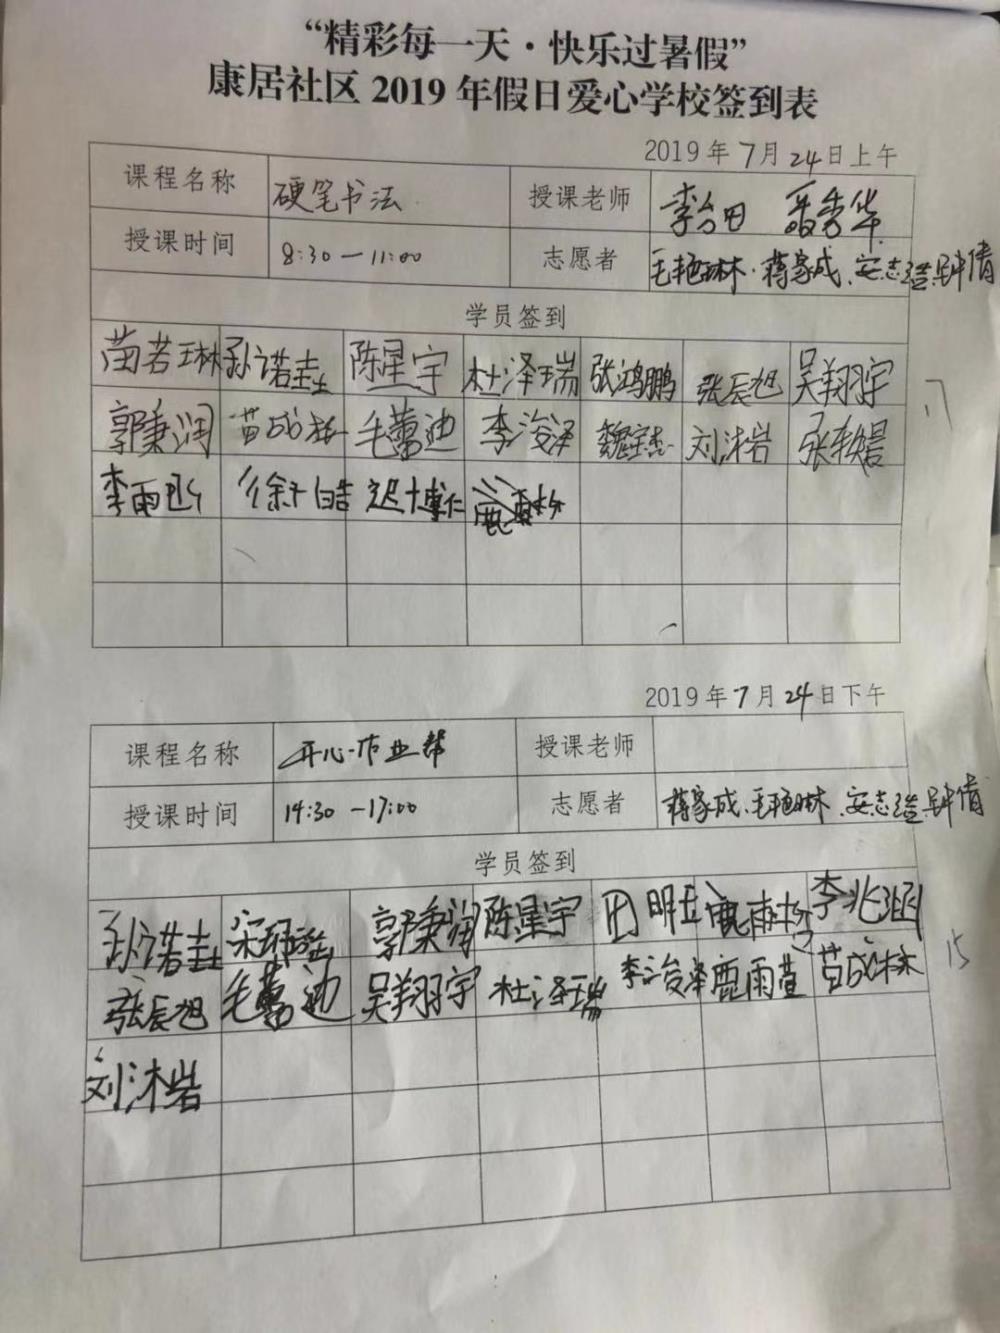 “精彩每一天·快乐过暑假”
康居社区 2019 年假日爱心学校签到表
2019 年 7 月 24 日上午
课程名称 硬笔书法 授课老师 李台田 聂秀华
授课时间 8:30—11:00 志愿者 毛艳琳、蒋家成、安志 钟倩
学员签到
苗若琳 孙诺 陈星宇 杜泽瑞 张鸿鹏 张辰旭 吴翔宇
17
郭秉润 苗成林 毛蕾迪 李浚泽 魏宝杰 刘沐岩 张轶晨
李雨 徐于皓 迟博仁
2019 年 7 月 24 日下午
课程名称 开心作业帮 授课老师
授课时间 14:30—17:00 志愿者 蒋家成、毛艳琳、安志 钟倩
学员签到
孙诺 宋 郭秉润 陈星宇 明 雨 李兆涵
15
张辰旭 毛蕾迪 吴翔宇 杜泽瑞 李浚泽 鹿雨萱 苗成林
刘沐岩